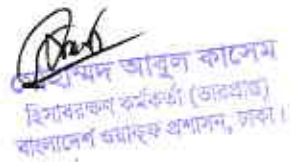 মোহাম্মদ আবুল কাসেম
হিসাবরক্ষণ কর্মকর্তা (ভারপ্রাপ্ত)
বাংলাদেশ ওয়াক্‌ফ প্রশাসন, ঢাকা।